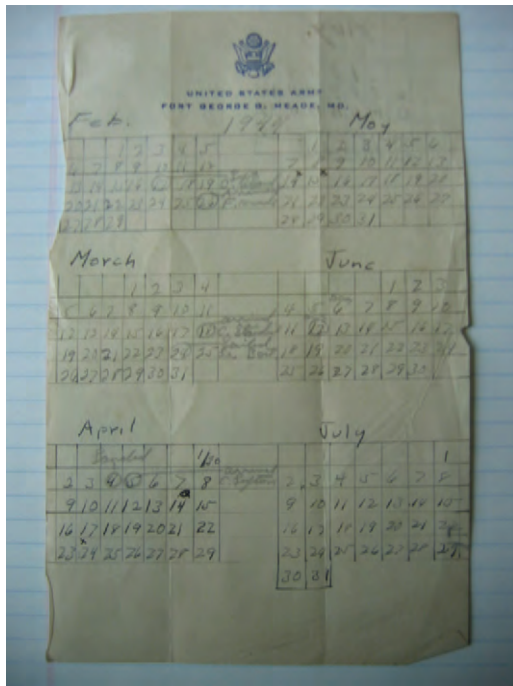 UNITED STATES ARMY
FORT GEORGE G. MEADE, MD.
1944
Feb.
1 2 3 4 5
6 7 8 9 10 11 12
13 14 15 16 18 19
20 21 22 23 24 25 26
27 28 29
March
1 2 3 4
5 6 7 8 9 10 11
12 13 14 15 16 17 18
19 20 21 22 23 24 25
26 27 28 29 30 31
April
2 3 4 5 6 7 8
9 10 11 12 13 14 15
16 17 18 19 20 21 22
23 24 25 26 27 28 29
May
1 2 3 4 5 6
7 8 9 10 11 12 13
14 15 16 17 18 19 20
21 22 23 24 25 26 27
28 29 30 31
June
1 2 3
4 5 6 7 8 9 10
11 12 13 14 15 16 17
18 19 20 21 22 23 24
25 26 27 28 29 30
July
1
2 3 4 5 6 7 8
9 10 11 12 13 14 15
16 17 18 19 20 21
23 24 25 26 27 28 29
30 31